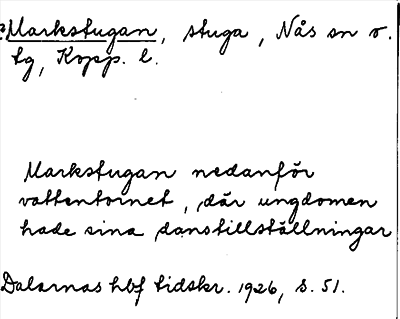 Markstugan, stuga, Nås sn o.
tg, Kopp. l.
Markstugan nedanför
vattentornet, där ungdomen
hade sina danstillställningar
Dalarnas hbf tidskr. 1926, s. 51.